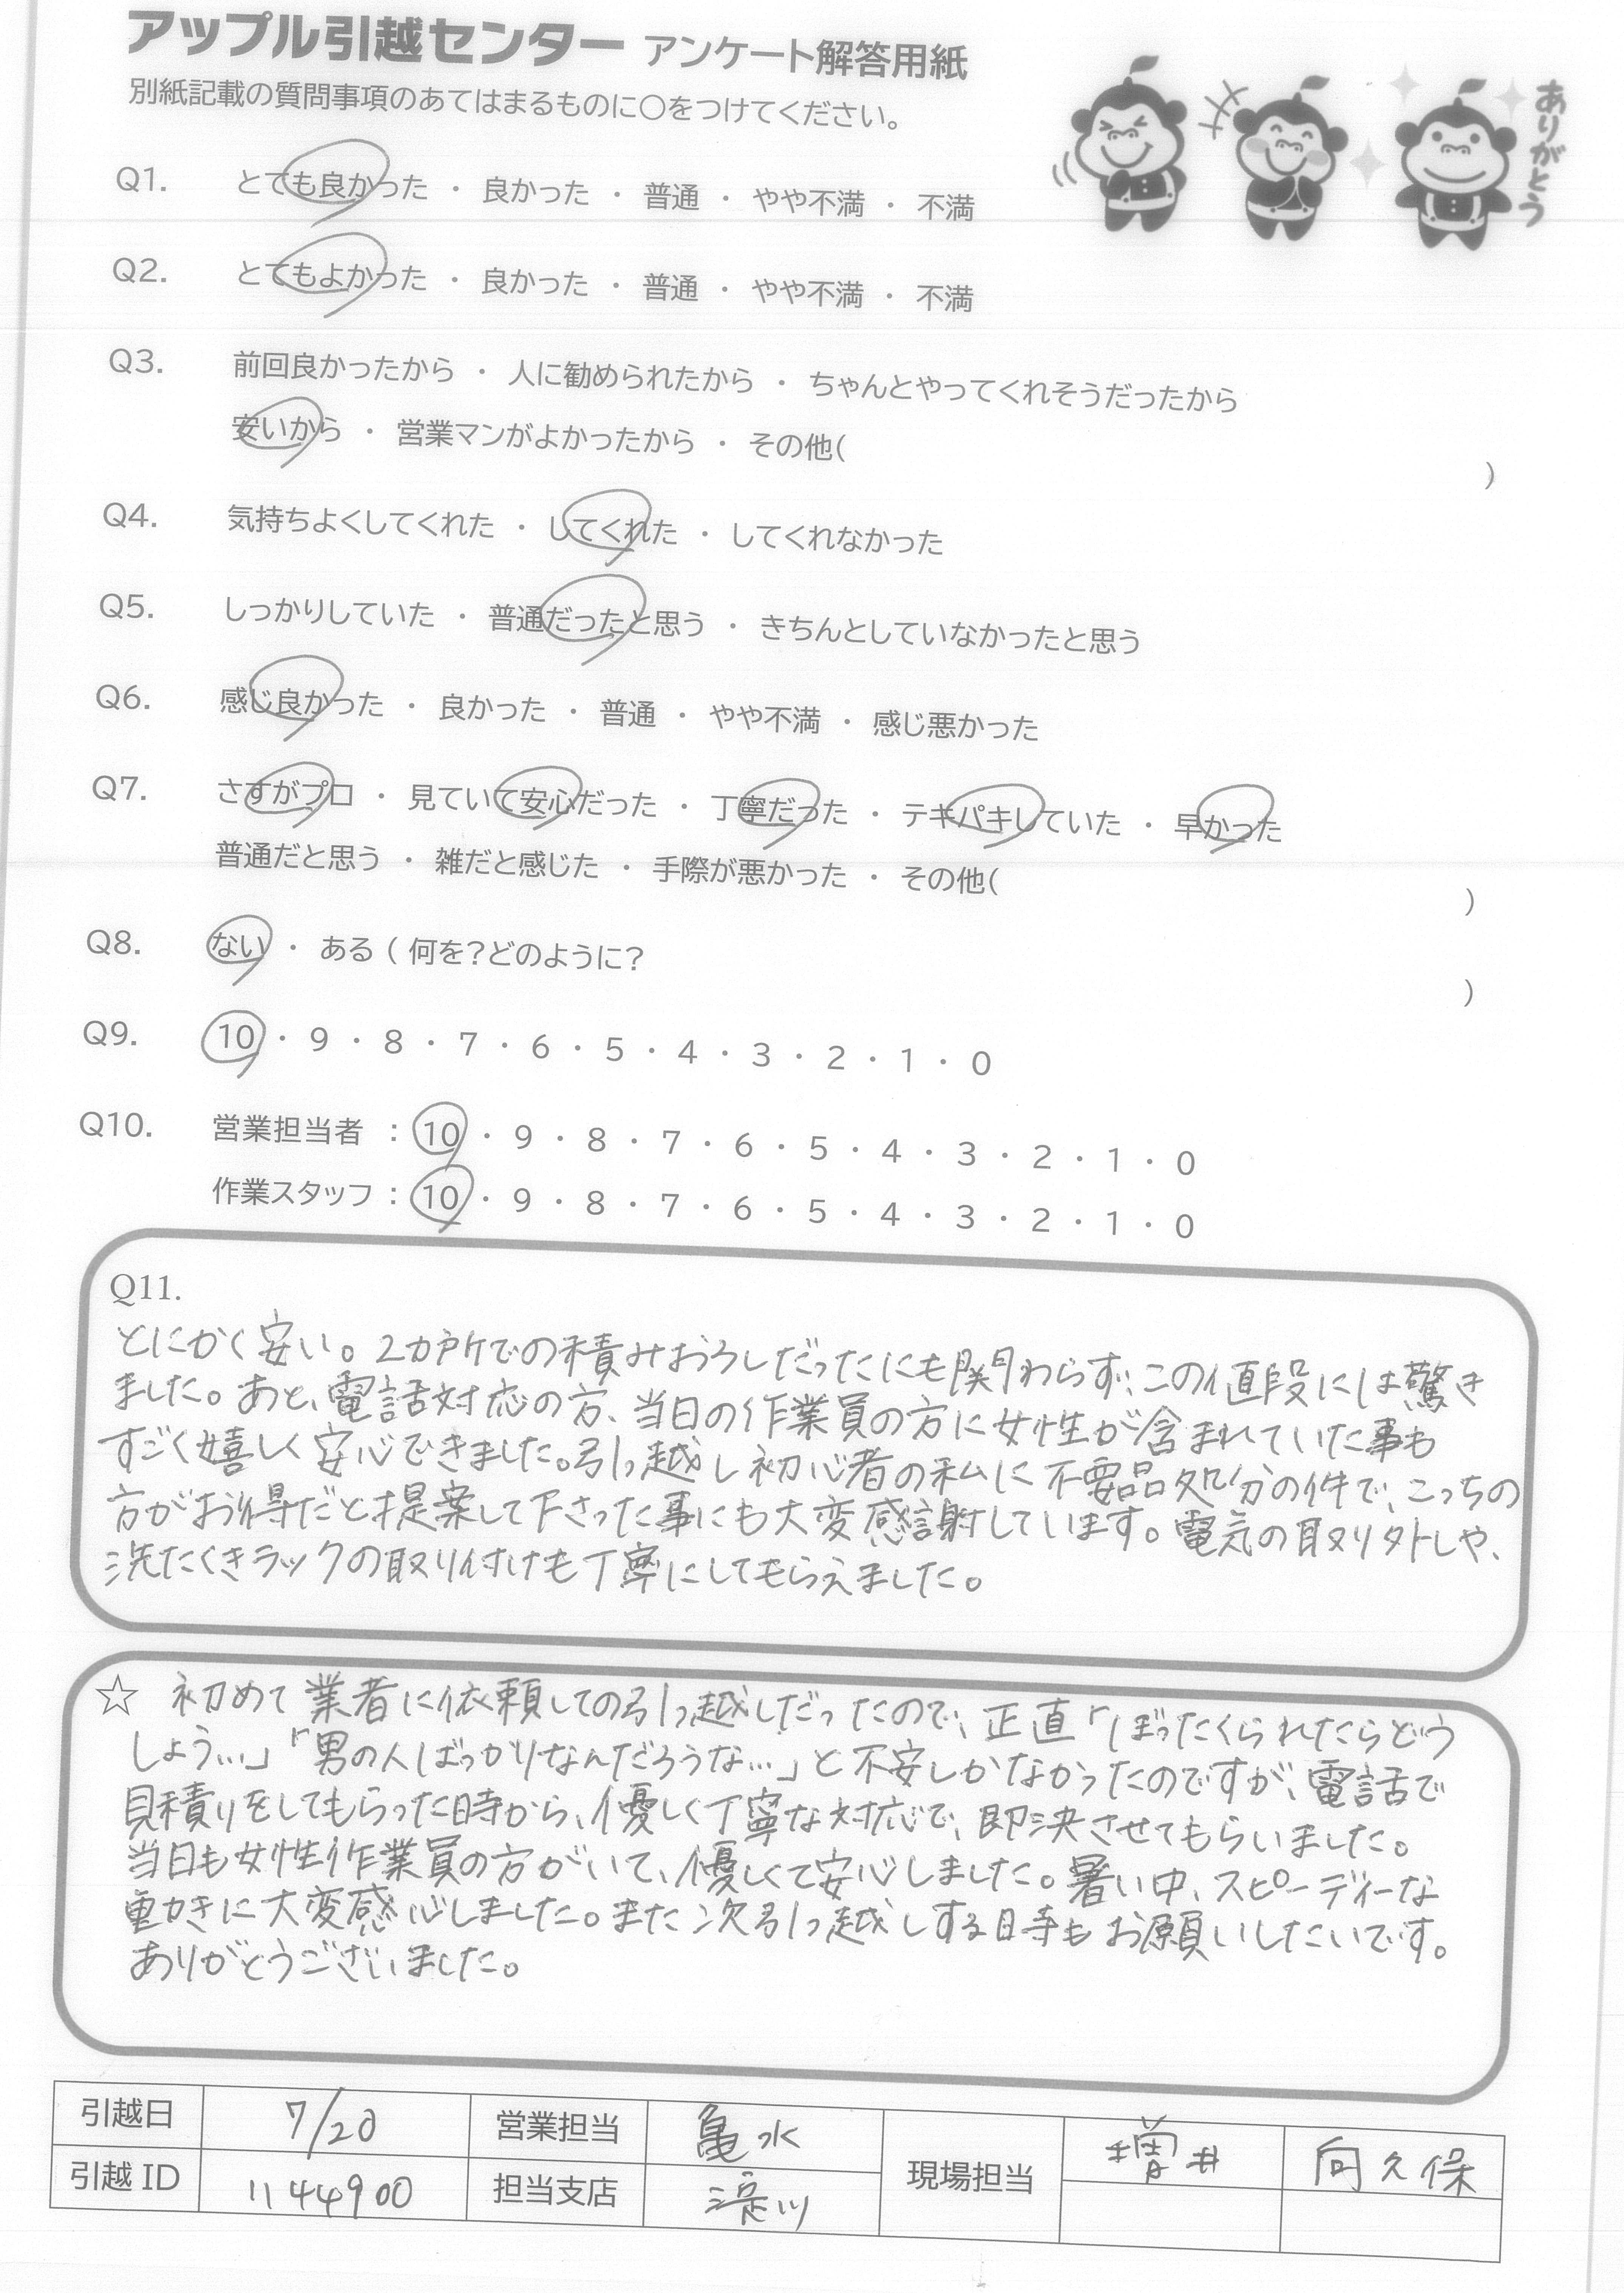 アップル引越センター アンケート解答用紙
別紙記載の質問事項のあてはまるものに〇をつけてください。
ありがとう
Q1. とても良かった ・ 良かった ・ 普通 ・ やや不満 ・ 不満
Q2. とてもよかった ・ 良かった ・ 普通 ・ やや不満 ・ 不満
Q3. 前回良かったから ・ 人に勧められたから ・ ちゃんとやってくれそうだったから
安いから ・ 営業マンがよかったから ・ その他( )
Q4. 気持ちよくしてくれた ・ してくれた ・ してくれなかった
Q5. しっかりしていた ・ 普通だったと思う ・ きちんとしていなかったと思う
Q6. 感じ良かった ・ 良かった ・ 普通 ・ やや不満 ・ 感じ悪かった
Q7. さすがプロ ・ 見ていて安心だった ・ 丁寧だった ・ テキパキしていた ・ 早かった
普通だと思う ・ 雑だと感じた ・ 手際が悪かった ・ その他( )
Q8. ない ・ ある ( 何を?どのように? )
Q9. 10 ・ 9 ・ 8 ・ 7 ・ 6 ・ 5 ・ 4 ・ 3 ・ 2 ・ 1 ・ 0
Q10. 営業担当者 : 10 ・ 9 ・ 8 ・ 7 ・ 6 ・ 5 ・ 4 ・ 3 ・ 2 ・ 1 ・ 0
作業スタッフ : 10 ・ 9 ・ 8 ・ 7 ・ 6 ・ 5 ・ 4 ・ 3 ・ 2 ・ 1 ・ 0
Q11.
とにかく安い。2カ所での積みおろしだったにも関わらず、この値段には驚き
ました。あと、電話対応の方、当日の作業員の方に女性が含まれていた事も
すごく嬉しく安心できました。引っ越し初心者の私に不要品処分の件で、こっちの
方がお得だと提案して下さった事にも大変感謝しています。電気の取り外しや、
洗たくきラックの取り付けも丁寧にしてもらえました。
☆ 初めて業者に依頼しての引っ越しだったので、正直「ぼったくられたらどう
しよう…」「男の人ばっかりなんだろうな…」と不安しかなかったのですが、電話で
見積りをしてもらった時から、優しく丁寧な対応で、即決させてもらいました。
当日も女性作業員の方がいて、優しくて安心しました。暑い中、スピーディーな
動きに大変感心しました。また次引っ越しする時もお願いしたいです。
ありがとうございました。
引越日 7/20 営業担当 亀水 現場担当 増井 向久保
引越 ID 1144900 担当支店 淀川